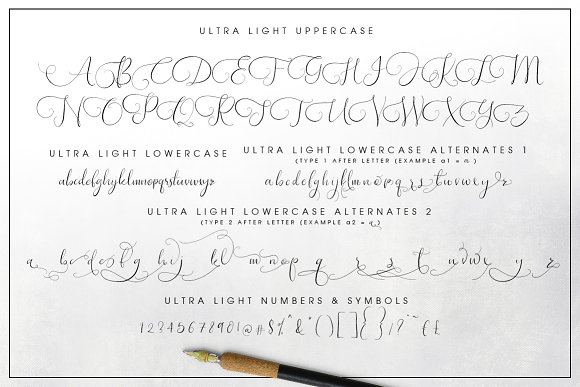 ULTRA LIGHT UPPERCASE
A B C D E F G H I J K L M
N O P Q R S T U V W X Y Z
ULTRA LIGHT LOWERCASE
abcdefghijklmnopqrstuvwxyz
ULTRA LIGHT LOWERCASE ALTERNATES 1
(TYPE 1 AFTER LETTER (EXAMPLE a1 = a )
abcdefghijklmnopqrstuvwxyz
ULTRA LIGHT LOWERCASE ALTERNATES 2
(TYPE 2 AFTER LETTER (EXAMPLE a2 = a)
a bcdefg hij kl mnop q r s t u v w x y z
ULTRA LIGHT NUMBERS & SYMBOLS
12345678901@#$%^&*()[]{}/!?